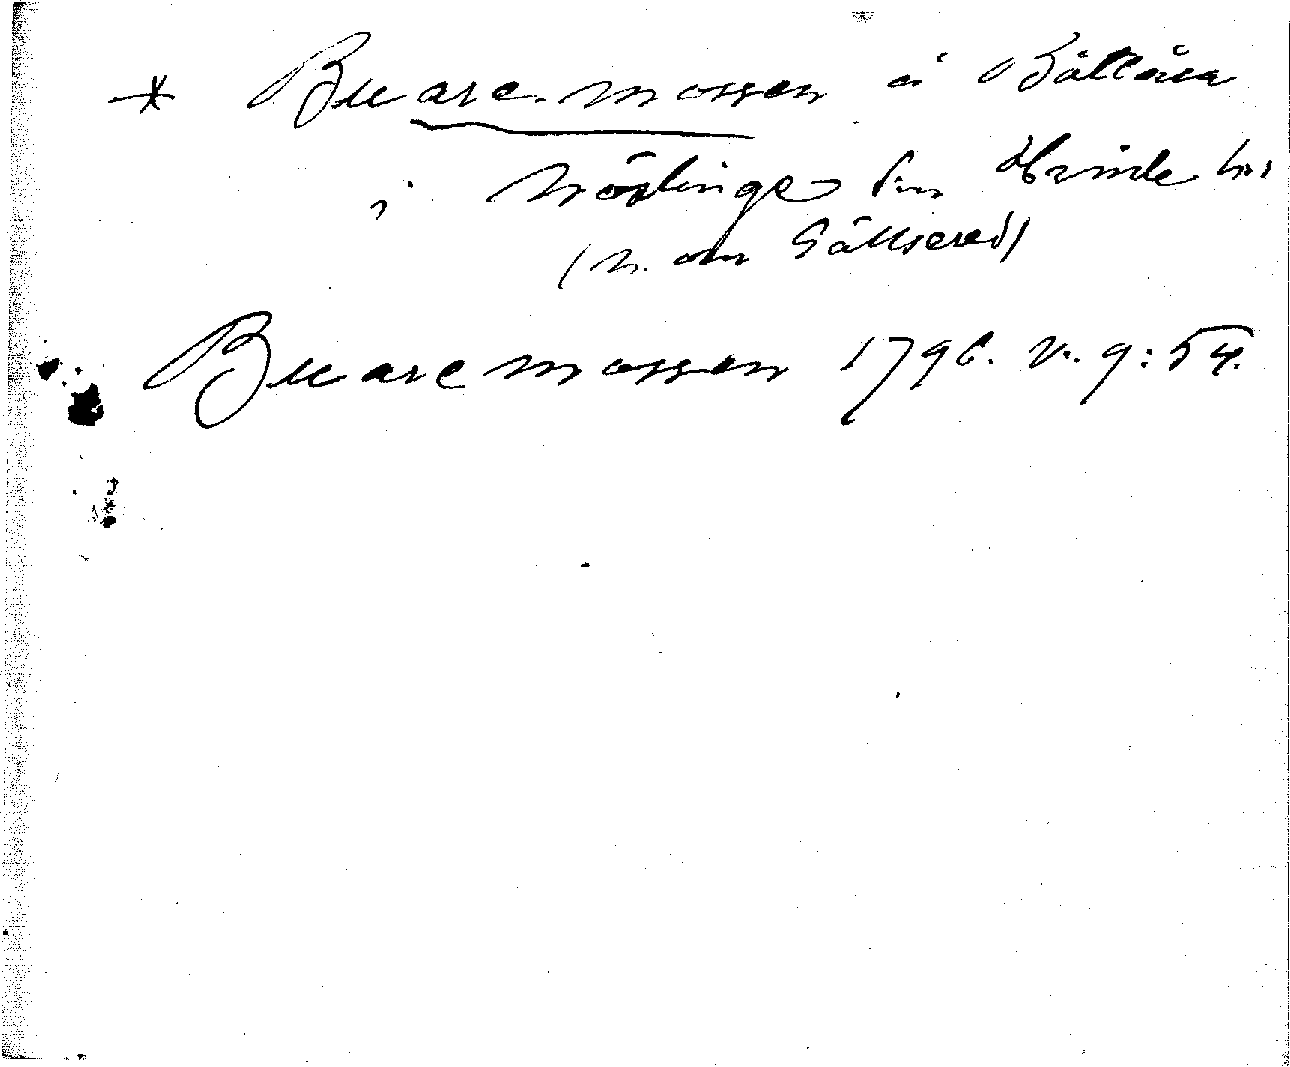 * Buaremossen å Bältåsa
i Nödinge sn Ävinde hd
(n. om Gällsered)
Buaremossen 1796. V. 9: 54.